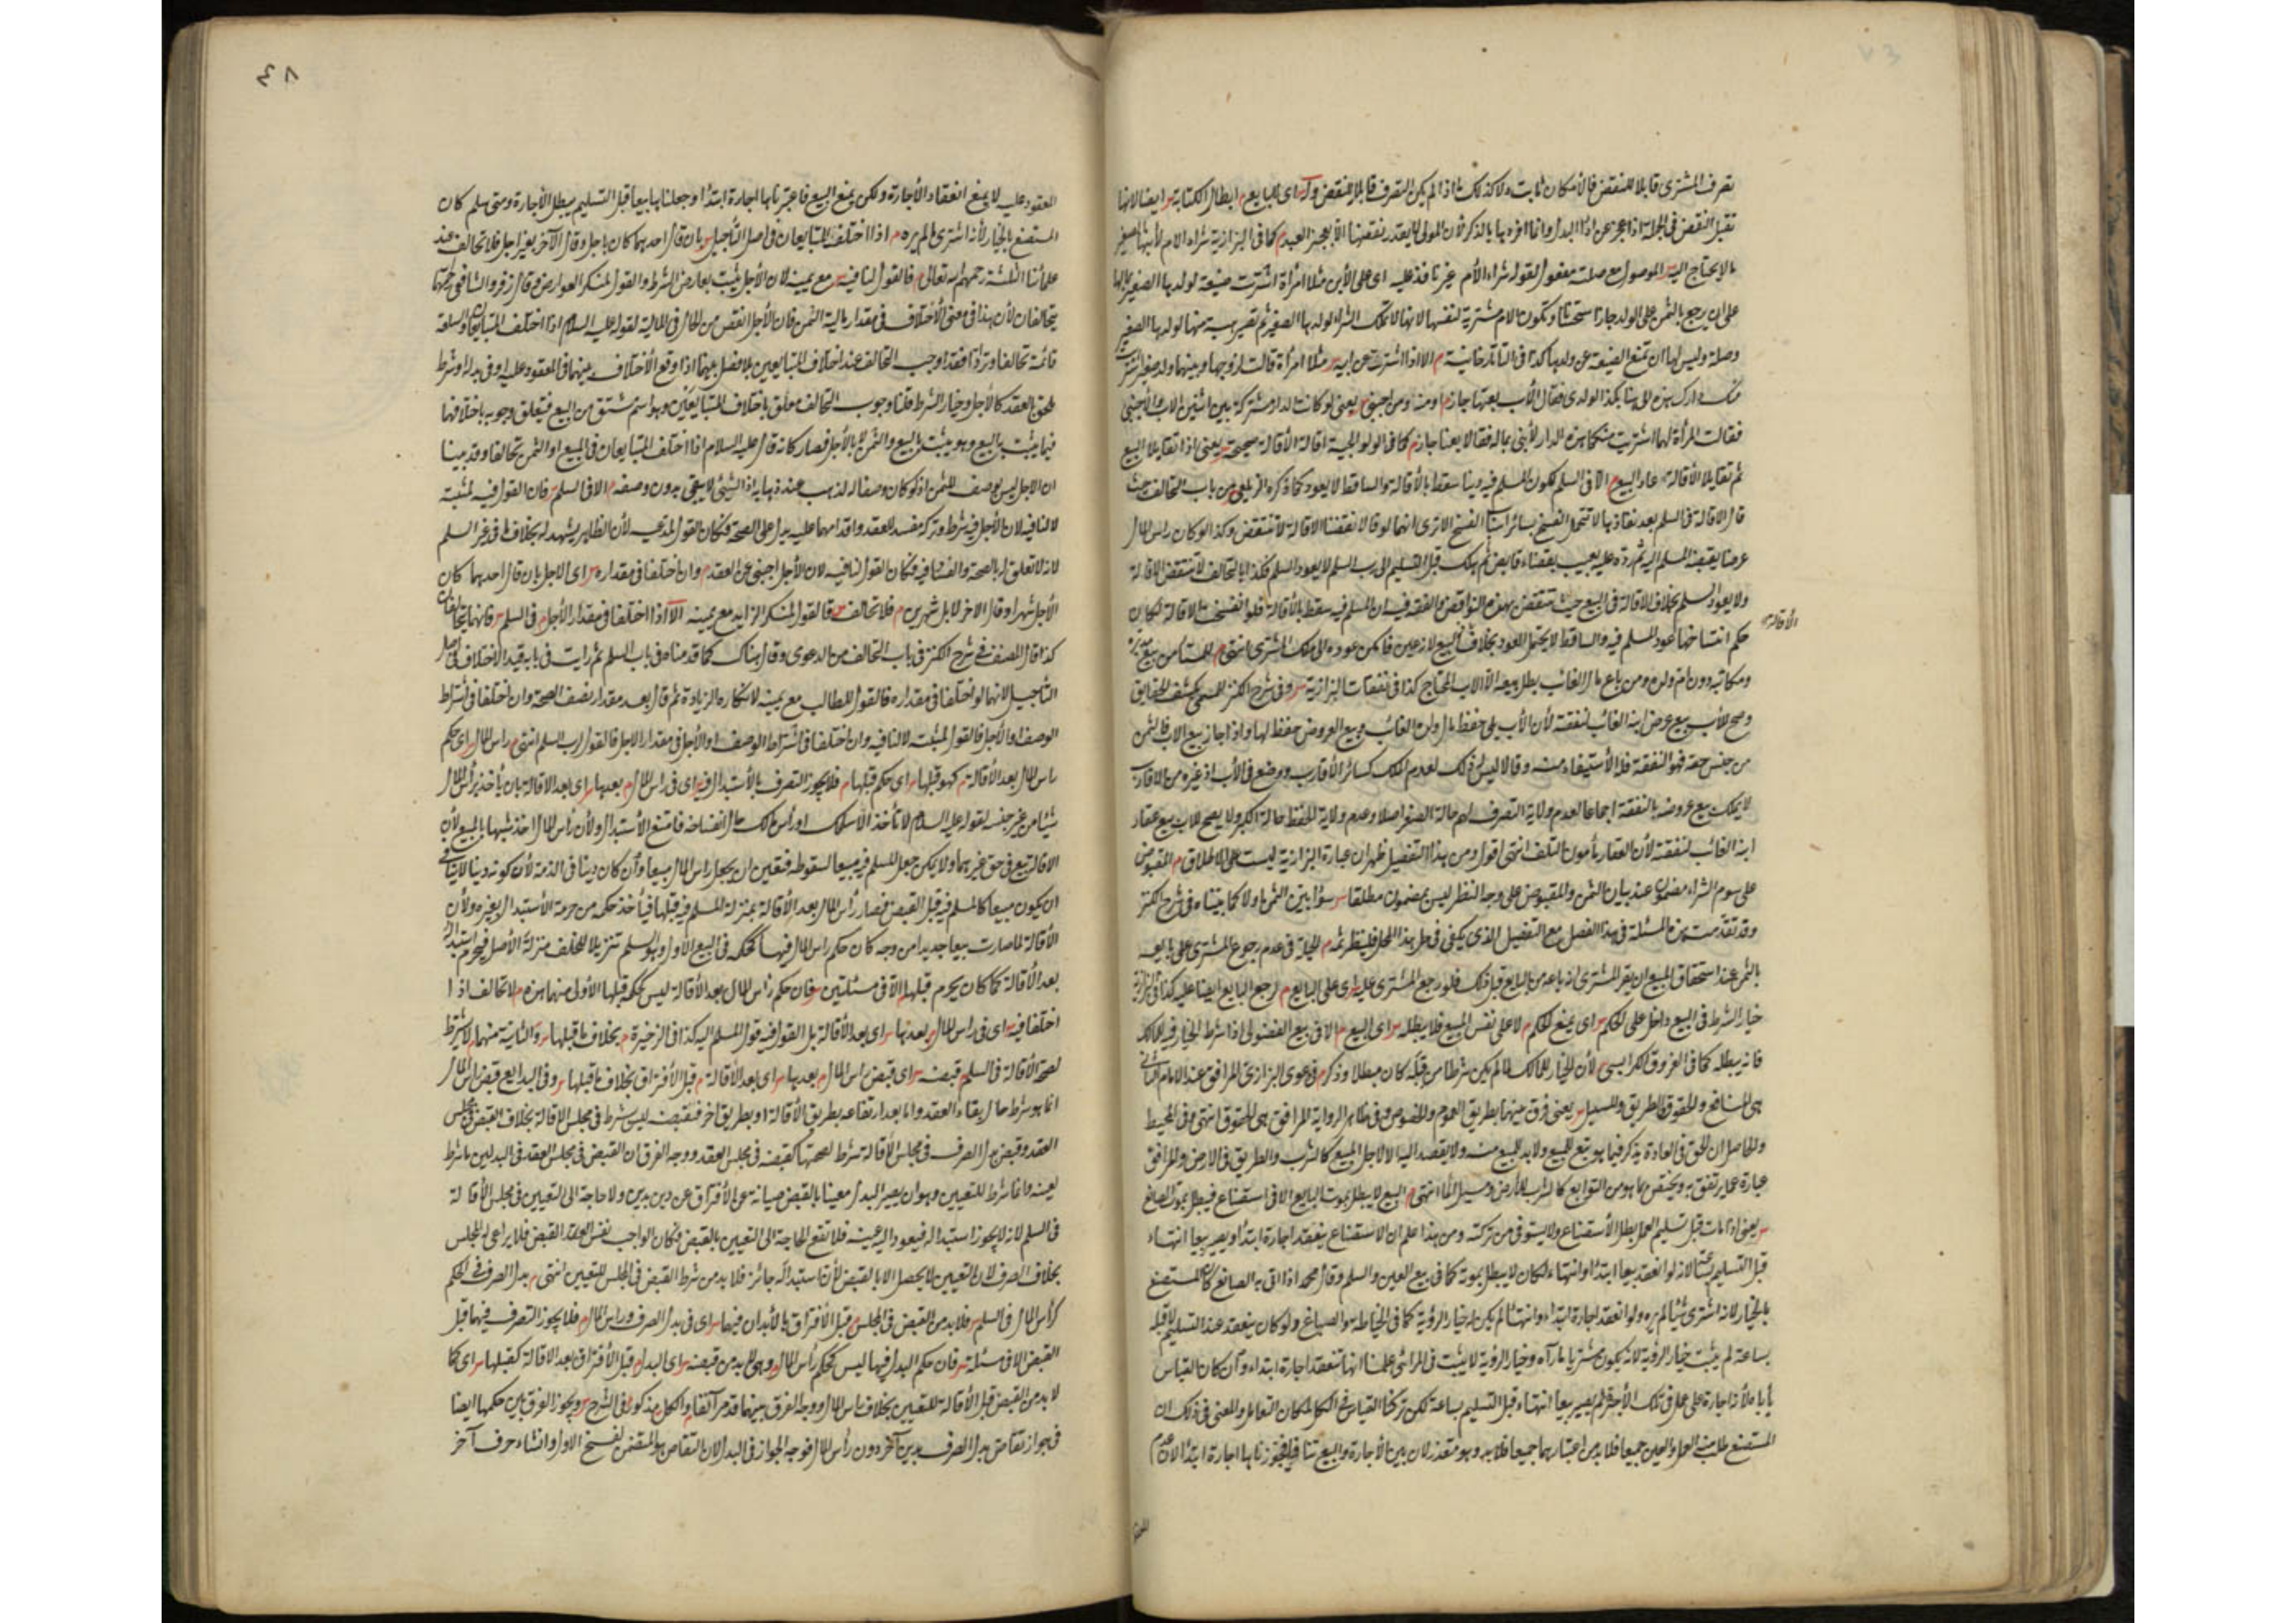 تصرف المشترى قابلا للنقض فالامكان ثابت ولا كذلك اذا لم يكن التصرف قابلا للنقض وله اى للبايع ابطال الكتابة ايضا لانها
تقبل النقض فى الجملة اذا عجز عن اداء البدل وانما افرده بالذكر لان المولى لا يقدر بنقضها الا بعجز العبد كما فى البزازية شراء الام لابنها الصغير
ما لا يحتاج اليه الموصول مع صلته مفعول لقوله شراء الأم غير نافذ عليه اى على الأبن مثلا امرأة اشترت ضيعة لولدها الصغير بمالها
على ان يرجع بالثمن على الولد جاز استحسانا وتكون الام مشترية لنفسها لانها لا تملك الشراء لولدها الصغير ثم تصير هبة منها لولدها الصغير
وصلة وليس لها ان تمنع الضيعة عن ولدها كذا فى التاتارخانية الا اذا اشترت من ابيه مثلا امرأة قالت لزوجها وبينهما ولد صغير اشتريت
منك دارك هذه لابننا بكذا الولدى فقال الأب بعتها جاز ومنه ومن اجنبى يعنى لو كانت الدار مشتركة بين اثنين الاب والأجنبى
فقالت المرأة لهما اشتريت منكما هذه الدار لأبنى بماله فقالا بعنا جاز كما فى الولوالجية اقالة الأقالة صحيحة يعنى اذا تقايلا البيع
ثم تقايلا الأقالة عاد البيع الا فى السلم لكون المسلم فيه دينا سقط بالأقالة والساقط لا يعود كما ذكره الزيلعى من باب التحالف حيث
قال الاقالة فى السلم بعد نفاذها لا تحتمل الفسخ بسائر اسباب الفسخ الا ترى انهما لو قالا نقضنا الاقالة لا تنتقض وكذا لو كان رأس المال
عرضا يقبضه المسلم اليه ثم رده عليه بعيب بقضاء قاض ثم هلك قبل التسليم الى رب السلم لا يعود السلم فكذا بالتحالف لا تنتقض الاقالة
ولا يعود السلم بخلاف الاقالة فى البيع حيث تنتقض بهذه النواقض والفقه فيه ان المسلم فيه سقط بالأقالة فلو انفسخت الاقالة لكان
الأقالة
حكم انفساخها عود المسلم فيه والساقط لا يحتمل العود بخلاف البيع لانه عين فامكن عوده الى ملك المشترى انتهى
ومكاتبه دون ام ولده ومن باع مال الغائب بطل بيعه الا الاب المحتاج كذا فى نفقات البزازية وفى شرح الكنز المسمى بكشف الحقايق
وصح للأب بيع عرض ابنه الغائب لنفقته لأن الأب يلى حفظ مال ولده الغائب وبيع العروض حفظ لها واذا جاز بيع الاب فالثمن
من جنس حقه فهو النفقة فله الأستيفاء منه وقالا ليس له ذلك لعدم الملك كسائر الأقارب ووضع فى الأب اذ غيره من الاقارب
لا يملك بيع عروضه بالنفقة اجماعا لعدم ولاية التصرف لهم حالة الصغر اصلا وعدم ولاية الحفظ حالة الكبر ولا يصح للاب بيع عقار
ابنه الغائب لنفقته لأن العقار مأمون التلف انتهى اقول ومن هذا التفصيل ظهر ان عبارة البزازية ليست على الاطلاق المقبوض
على سوم الشراء مضمون عند بيان الثمن والمقبوض على وجه النظر ليس بمضمون مطلقا سواء بين الثمن اولا كما بيناه فى شرح الكنز
وقد تقدمت هذه المسئلة فى هذا الفصل مع التفصيل الذى يكفى فى حل هذا المحل فلينظر ثمه الحيلة فى عدم رجوع المشترى على بايعه
بالثمن عند استحقاق المبيع ان يقر المشترى انه باعه من البايع قبل ذلك فلو رجع المشترى عليه اى على البايع رجع البايع ايضا عليه كذا فى البزازية
خيار الشرط فى البيع داخل على الحكم اى يمنع الحكم لا على نفس المبيع فلا يبطله اى البيع الا فى بيع الفضولى اذا شرط الخيار فيه للمالك
فانه يبطله كما فى الفروق للكرابيسى لأن الخيار للمالك لما لم يكن شرطا من قبله كان مبطلا وذكر فى دعوى البزازى المرافق عند الامام الثانى
هى المنافع والحقوق الطريق والمسيل يعنى فرق بينهما بطريق العموم والخصوص وفى ظاهر الرواية المرافق هى الحقوق انتهى وفى المحيط
والحاصل ان الحق فى العادة يذكر فيما هو تبع للمبيع ولا بد للمبيع منه ولا يقصد اليه الا لاجل المبيع كالشرب والطريق فى الارض والمرافق
عبارة عما يرتفق به ويختص بما هو من التوابع كالشراب للأرض ومسيل الماء انتهى البيع لا يبطل بموت البايع الا فى استصناع فيبطل بموت الصانع
يعنى اذا مات قبل تسليم العمل بطل الأستصناع ولا يستوفى من تركته ومن هذا علم ان الاستصناع ينعقد اجارة ابتداء ويصير بيعا انتهاء
قبل التسليم لانه لو انعقد بيعا ابتداء وانتهاء لكان لا يبطل بموته كما فى بيع العين والسلم وقال محمد اذا اتى به الصانع كان المستصنع
بالخيار لانه اشترى شيئا لم يره ولو انعقد اجارة ابتداء وانتهاء لم يكن له خيار الرؤية كما فى الخياط والصباغ ولو كان ينعقد عند التسليم لا قبله
بساعة لم يثبت خيار الرؤية لانه يكون مشتريا ما رآه وخيار الرؤية لا يثبت فى المرائى علمنا انها تنعقد اجارة ابتداء وان كان القياس
يأبا هلأنه اجارة على عمل فى ملك الأجير ثم يصير بيعا انتهاء قبل التسليم بساعة لكن تركنا القياس فى الكل لمكان التعامل والمعنى فى ذلك ان
المستصنع طلب منه العمل والعين جميعا فلا بد من اعتبارهما جميعا فلا بد وهو متعذر لان بين الأجارة والبيع تنافيا فجوزناها اجارة ابتداء لان عدم
٤٨
المعقود عليه لا يمنع انعقاد الأجارة ولكن يمنع البيع فاعتبرناها اجارة ابتداء وجعلناها بيعا قبل التسليم يبطل الأجارة ومتى سلم كان
المستصنع بالخيار لأنه اشترى ما لم يره اذا اختلف المتبايعان فى اصل التأجيل بان قال احدهما كان باجل وقال الآخر بغير اجل فلا تحالف عند
علمائنا الثلثة رحمهم الله تعالى فالقول لنافيه مع يمينه لان الأجل يثبت بعارض الشرط والقول لمنكر العوارض وقال زفر والشافعى رحمهما
يتحالفان لأن هذا فى معنى الأختلاف فى مقدار مالية الثمن فان الأجل انقص من الحال فى المالية لقوله عليه السلام اذا اختلف المتبايعان والسلعة
قائمة تحالفا وترادا فقد اوجب التحالف عند اختلاف المتبايعين بلا فصل بينهما اذا وقع الأختلاف بينهما فى المعقود عليه او فى بدله او شرط
ملحق العقد كالأجل وخيار الشرط قلنا وجوب التحالف معلق باختلاف المتبايعين وهو اسم مشتق من البيع فيتعلق وجوبه باختلافهما
فيما يثبت بالبيع وهو يثبت المبيع والثمن لا بالأجل فصار كانه قال عليه السلام اذا اختلف المتبايعان فى المبيع او الثمن تحالفا وقد بينا
ان الاجل ليس بوصف للثمن اذ لو كان وصفا له لذهب عند ذهابه اذ الشيئ لا يبقى بدون وصفه الا فى السلم فان القول فيه لمثبته
لا لنافيه لان الأجل فيه شرط وتركه مفسد للعقد واقدامهما عليه يدل على الصحة فكان القول لمدعيه لأن الظاهر يشهد له بخلاف ما فى غير السلم
لانه لا تعلق له بالصحة والفساد فيه فكان القول لنافيه لان الأجل اجنبى عن العقد وان اختلفا فى مقداره اى الاجل بان قال احدهما كان
الأجل شهرا وقال الاخر لا بل شهرين فلا تحالف فالقول لمنكر الزايد مع يمينه الا اذا اختلفا فى مقدار الأجل فى السلم فانهما يتحالفان
كذا قال المصنف فى شرح الكنز فى باب التحالف من الدعوى وقال هناك كما قدمناه فى باب السلم ثم رايت فى بابه قيد الاختلاف فى اصل
التأجيل لانهما لو اختلفا فى مقداره فالقول للطالب مع يمينه لانكاره الزيادة ثم قال بعد مقدار نصف الصحة وان اختلفا فى اشتراط
الوصف او الأجل فالقول لمثبته لا لنافيه وان اختلفا فى اشتراط الوصف او الأجل فى مقدار الاجل فالقول لرب السلم انتهى راس المال اى حكم
راس المال بعد الأقالة كهو قبلها اى حكم قبلها فلا يجوز التصرف بالأستبدال فيه اى فى راس المال بعدها اى بعد الاقالة بان يأخذ برأس المال
شيئا من غير جنسه لقوله عليه السلام لا تأخذ الا سلمك او رأس مالك حال انفساخه فامتنع الأستبدال ولأن رأس المال اخذ شبها بالمبيع لأن
الاقالة بيع فى حق غيرهما ولا يمكن جعل المسلم فيه مبيعا لسقوطه فتعين ان يجعل راس المال مبيعا وأن كان دينا فى الذمة لأن كونه دينا لا ينافى
ان يكون مبيعا كالمسلم فيه قبل القبض فصار رأس المال بعد الأقالة بمنزلة المسلم فيه قبلها فيأخذ حكمه من حرمة الأستبدال بغيره ولأن
الأقالة لما صارت بيعا جديدا من وجه كان حكم راس المال فيها كحكمه فى البيع الاول وهو السلم تنزيلا للخلف منزلة الأصل فيحرم استبداله
بعد الأقالة كما كان يحرم قبلها الا فى مسئلتين فان حكم رأس المال بعد الأقالة ليس كحكمه قبلها الأولى منهما هذه لا تحالف اذا
اختلفا فيه اى فى راس المال بعدها اى بعد الأقالة بل القول فيه قول المسلم اليه كذا فى الزخيرة بخلاف ما قبلها والثانية منهما لا يشترط
لصحة الأقالة فى السلم قبضه اى قبض راس المال بعدها اى بعد الأقالة قبل الأفتراق بخلاف ما قبلها وفى البدايع قبض رأس المال
انما هو شرط حال بقاء العقد واما بعد ارتفاعه بطريق الأقالة او بطريق اخر فقبضه ليس شرط فى مجلس الاقالة بخلاف القبض فى مجلس
العقد وقبض بدل الصرف فى مجلس الأقالة شرط لصحتها كقبضه فى مجلس العقد ووجه الفرق ان القبض فى مجلس العقد فى البدلين ما شرط
لعينه وانما شرط للتعيين وهو ان يصير البدل معينا بالقبض صيانة عن الأفتراق عن دين بدين ولا حاجة الى التعيين فى مجلس الأقالة
فى السلم لانه لا يجوز استبداله فيعود اليه عينه فلا تقع الحاجة الى التعيين بالقبض فكان الواجب نفس القبض فلا يراعى له المجلس
بخلاف الصرف لان التعيين لا يحصل الا بالقبض لأن استبداله جائز فلا بد من شرط القبض فى المجلس للتعيين انتهى بدل الصرف فى الحكم
كرأس المال فى السلم فلا بد من القبض فى المجلس قبل الأفتراق بالأبدان فيهما اى فى بدل الصرف وراس المال فلا يجوز التصرف فيهما قبل
القبض الا فى مسئلة فان حكم البدل فيها ليس كحكم رأس المال وهى لا بد من قبضه اى البدل قبل الأفتراق بعد الاقالة كقبلها اى كما
لا بد من القبض قبل الأقالة للتعيين بخلاف راس المال ووجه الفرق بينهما قد مر آنفا والكل مذكور فى الشرح ويجوز الفرق بين حكمها ايضا
فى جواز تقاص بدل الصرف بدين آخر دون رأس المال فوجه الجواز فى البدل لان التقاص هو المقتضى لفسخ الاول وانشاء صرف آخر